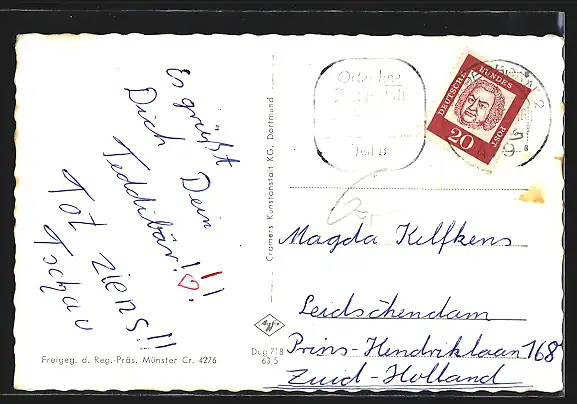 Es grüßt
Dich Dein
Teddibär!!!
Tot ziens!!
Tschau
Freigeg. d. Reg.-Präs. Münster Cr. 4276
Cramers Kunstanstalt KG, Dortmund
Dug 718
63,5
DEUTSCHE BUNDESPOST
20
Magda Kelfkens
Leidschendam
Prins-Hendriklaan 168
Zuid-Holland